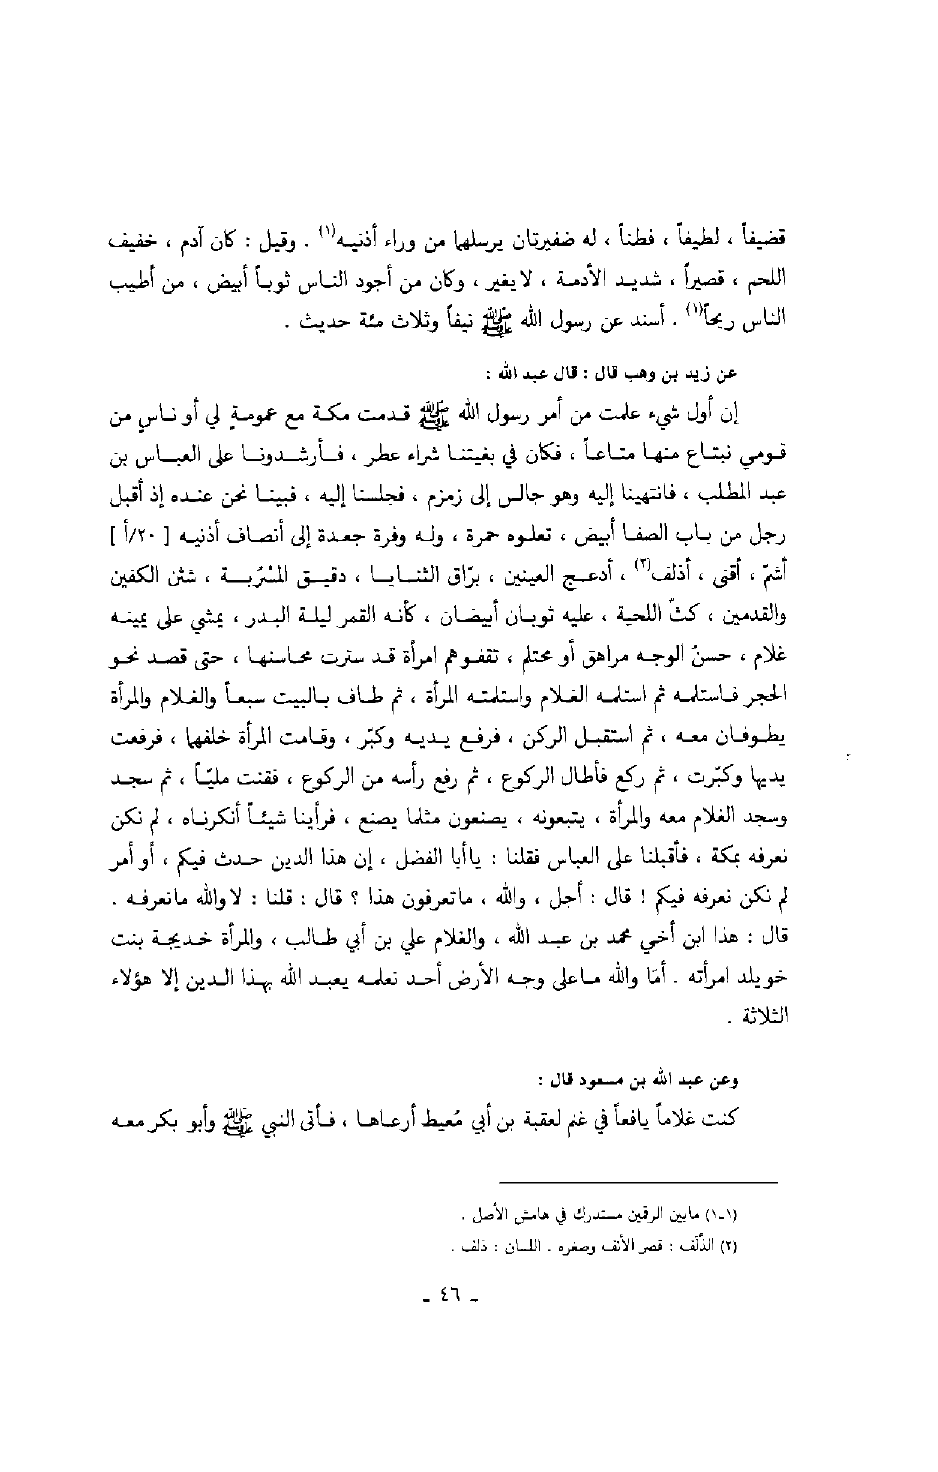 قضيفاً ، لطيفاً ، فطناً ، له ضفيرتان يرسلها من وراء أذنيه(١) . وقيل : كان آدم ، خفيف
اللحم ، قصيراً ، شديد الأدمة ، لا يغير ، وكان من أجود الناس ثوباً أبيض ، من أطيب
الناس ريحاً(١) . أسند عن رسول الله ﷺ نيفاً وثلاث مئة حديث .
عن زيد بن وهب قال : قال عبد الله :
إن أول شيء علمت من أمر رسول الله ﷺ قدمت مكة مع عمومةٍ لي أو ناسٍ من
قومي نبتاع منها متاعاً ، فكان في بغيتنا شراء عطر ، فأرشدونا على العباس بن
عبد المطلب ، فانتهينا إليه وهو جالس إلى زمزم ، فجلسنا إليه ، فبينا نحن عنده إذ أقبل
رجل من باب الصفا أبيض ، تعلوه حمرة ، وله وفرة جعدة إلى أنصاف أذنيه [ ٢٠/أ ]
أشمّ ، أقنى ، أذلف(٢) ، أدعج العينين ، برّاق الثنايا ، دقيق المَسْرُبة ، شثن الكفين
والقدمين ، كثّ اللحية ، عليه ثوبان أبيضان ، كأنه القمر ليلة البدر ، يمشي على يمينه
غلام ، حسنُ الوجه مراهق أو محتلم ، تقفوهم امرأة قد سترت محاسنها ، حتى قصد نحو
الحجر فاستلمه ثم استلمه الغلام واستلمته المرأة ، ثم طاف بالبيت سبعاً والغلام والمرأة
يطوفان معه ، ثم استقبل الركن ، فرفع يديه وكبّر ، وقامت المرأة خلفها ، فرفعت
يديها وكبّرت ، ثم ركع فأطال الركوع ، ثم رفع رأسه من الركوع ، فقنت مليّاً ، ثم سجد
وسجد الغلام معه والمرأة ، يتبعونه ، يصنعون مثلما يصنع ، فرأينا شيئاً أنكرناه ، لم نكن
نعرفه بمكة ، فأقبلنا على العباس فقلنا : يا أبا الفضل ، إن هذا الدين حدث فيكم ، أو أمر
لم نكن نعرفه فيكم ! قال : أجل ، والله ، ما تعرفون هذا ؟ قال : قلنا : لا والله ما نعرفه .
قال : هذا ابن أخي محمد بن عبد الله ، والغلام علي بن أبي طالب ، والمرأة خديجة بنت
خويلد امرأته . أمّا والله ما على وجه الأرض أحد نعلمه يعبد الله بهذا الدين إلا هؤلاء
الثلاثة .
وعن عبد الله بن مسعود قال :
كنت غلاماً يافعاً في غنم لعقبة بن أبي مُعيط أرعاها ، فأتى النبي ﷺ وأبو بكر معه
(١-١) ما بين الرقمين مستدرك في هامش الأصل .
(٢) الذَّلَف : قصر الأنف وصغره . اللسان : ذلف .
ـ ٤٦ ـ